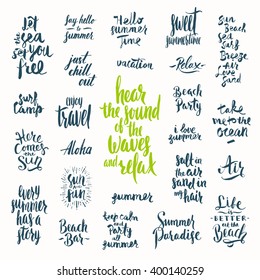 Let
the Sea
set you
free
Say hello
to
summer
Hello
summer
time
Sweet
summertime
Sun
Beach
Sea
Surf
Breeze
Air
Love
Sand
just
chill
out
vacation
Relax
Surf
Camp
enjoy
travel
hear
the sound
of the
waves
and
relax
Beach
Party
take
me to the
ocean
i love
summer
Here
comes
the
Sun
Aloha
Salt in
the air
sand in
my
hair
Air
Sun
and
Fun
Every
summer
has a
story
summer
Life
is
BETTER
at the
Beach
Beach
Bar
keep calm
and
Party
all
summer
Summer
Paradise
shutterstock
IMAGE ID: 400140259
www.shutterstock.com